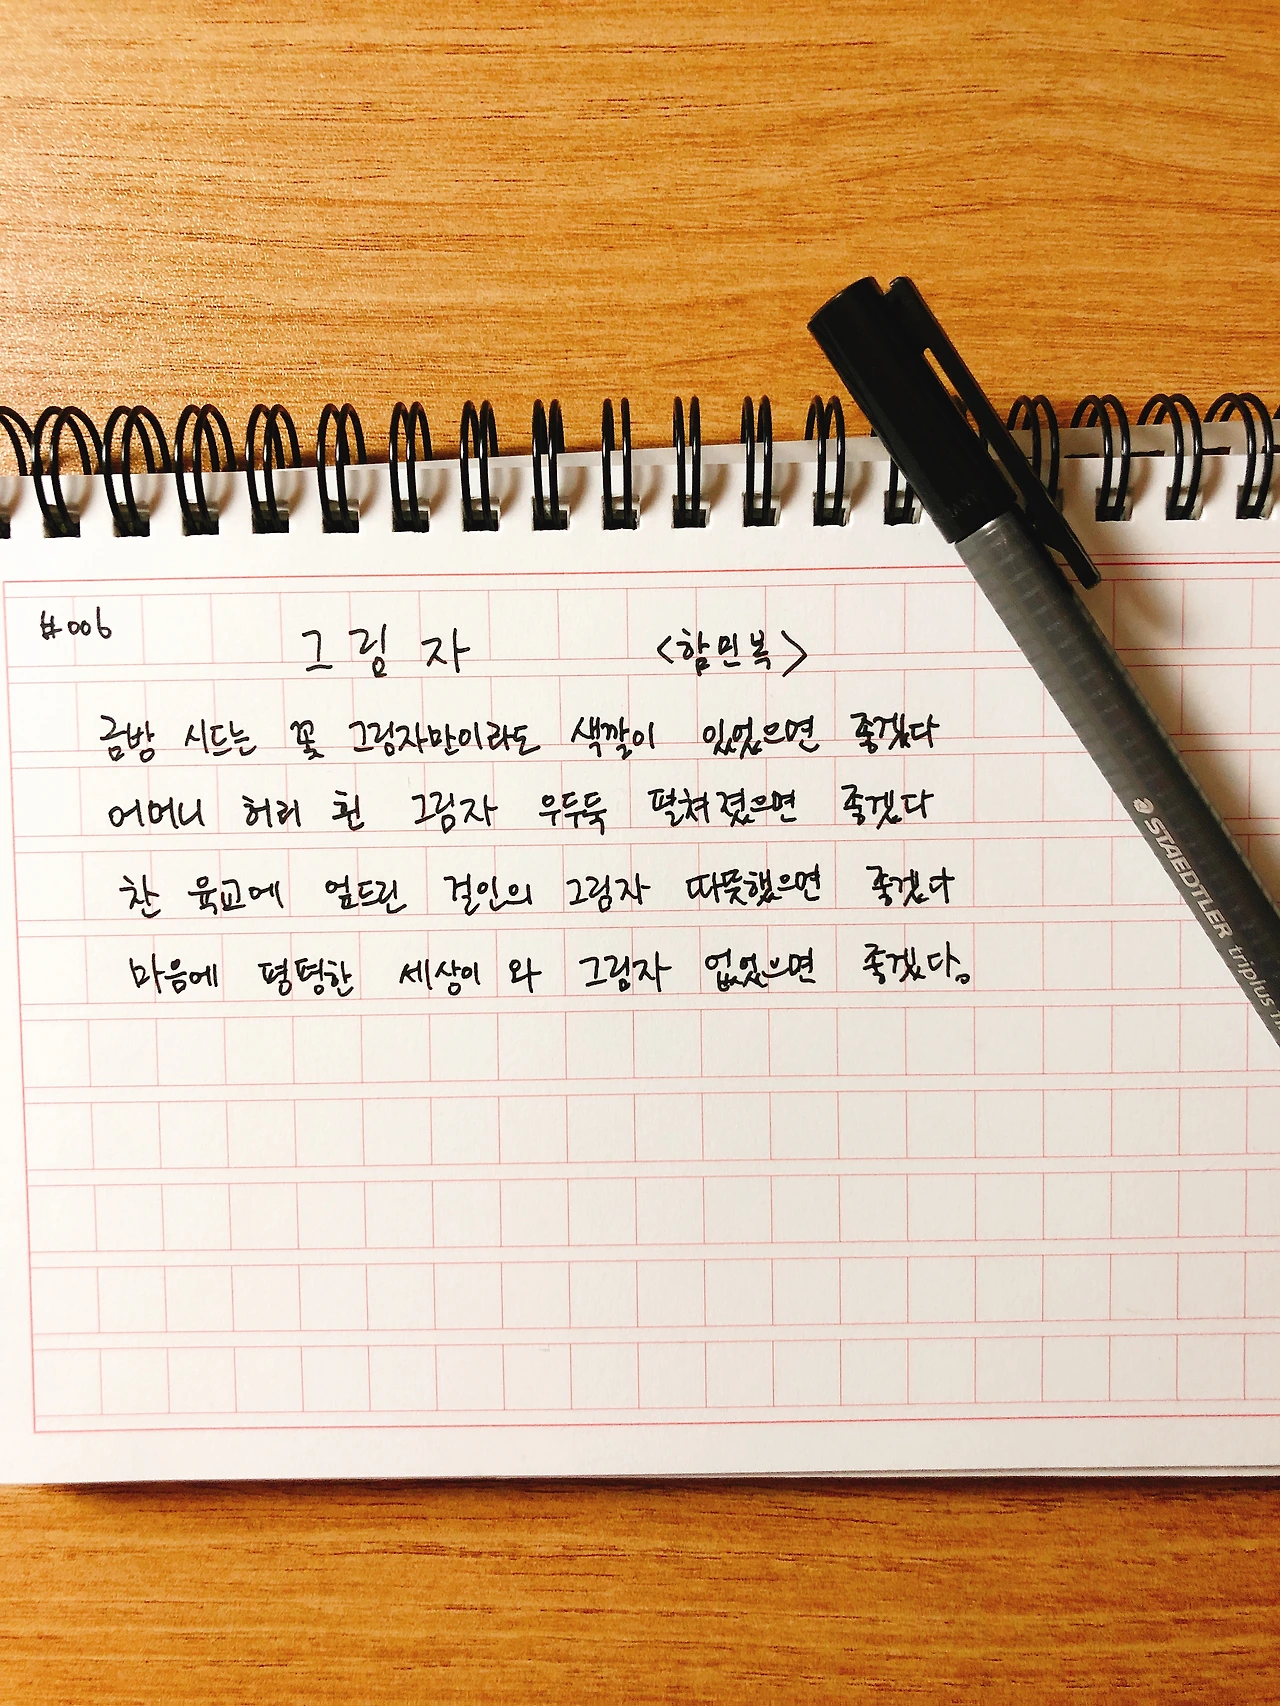 #006
그림자 <함민복>
금방 시드는 꽃 그림자만이라도 색깔이 있었으면 좋겠다
어머니 허리 휜 그림자 우두둑 펼쳐졌으면 좋겠다
찬 육교에 엎드린 걸인의 그림자 따뜻했으면 좋겠다
마음에 평평한 세상이 와 그림자 없었으면 좋겠다.
STAEDTLER triplus